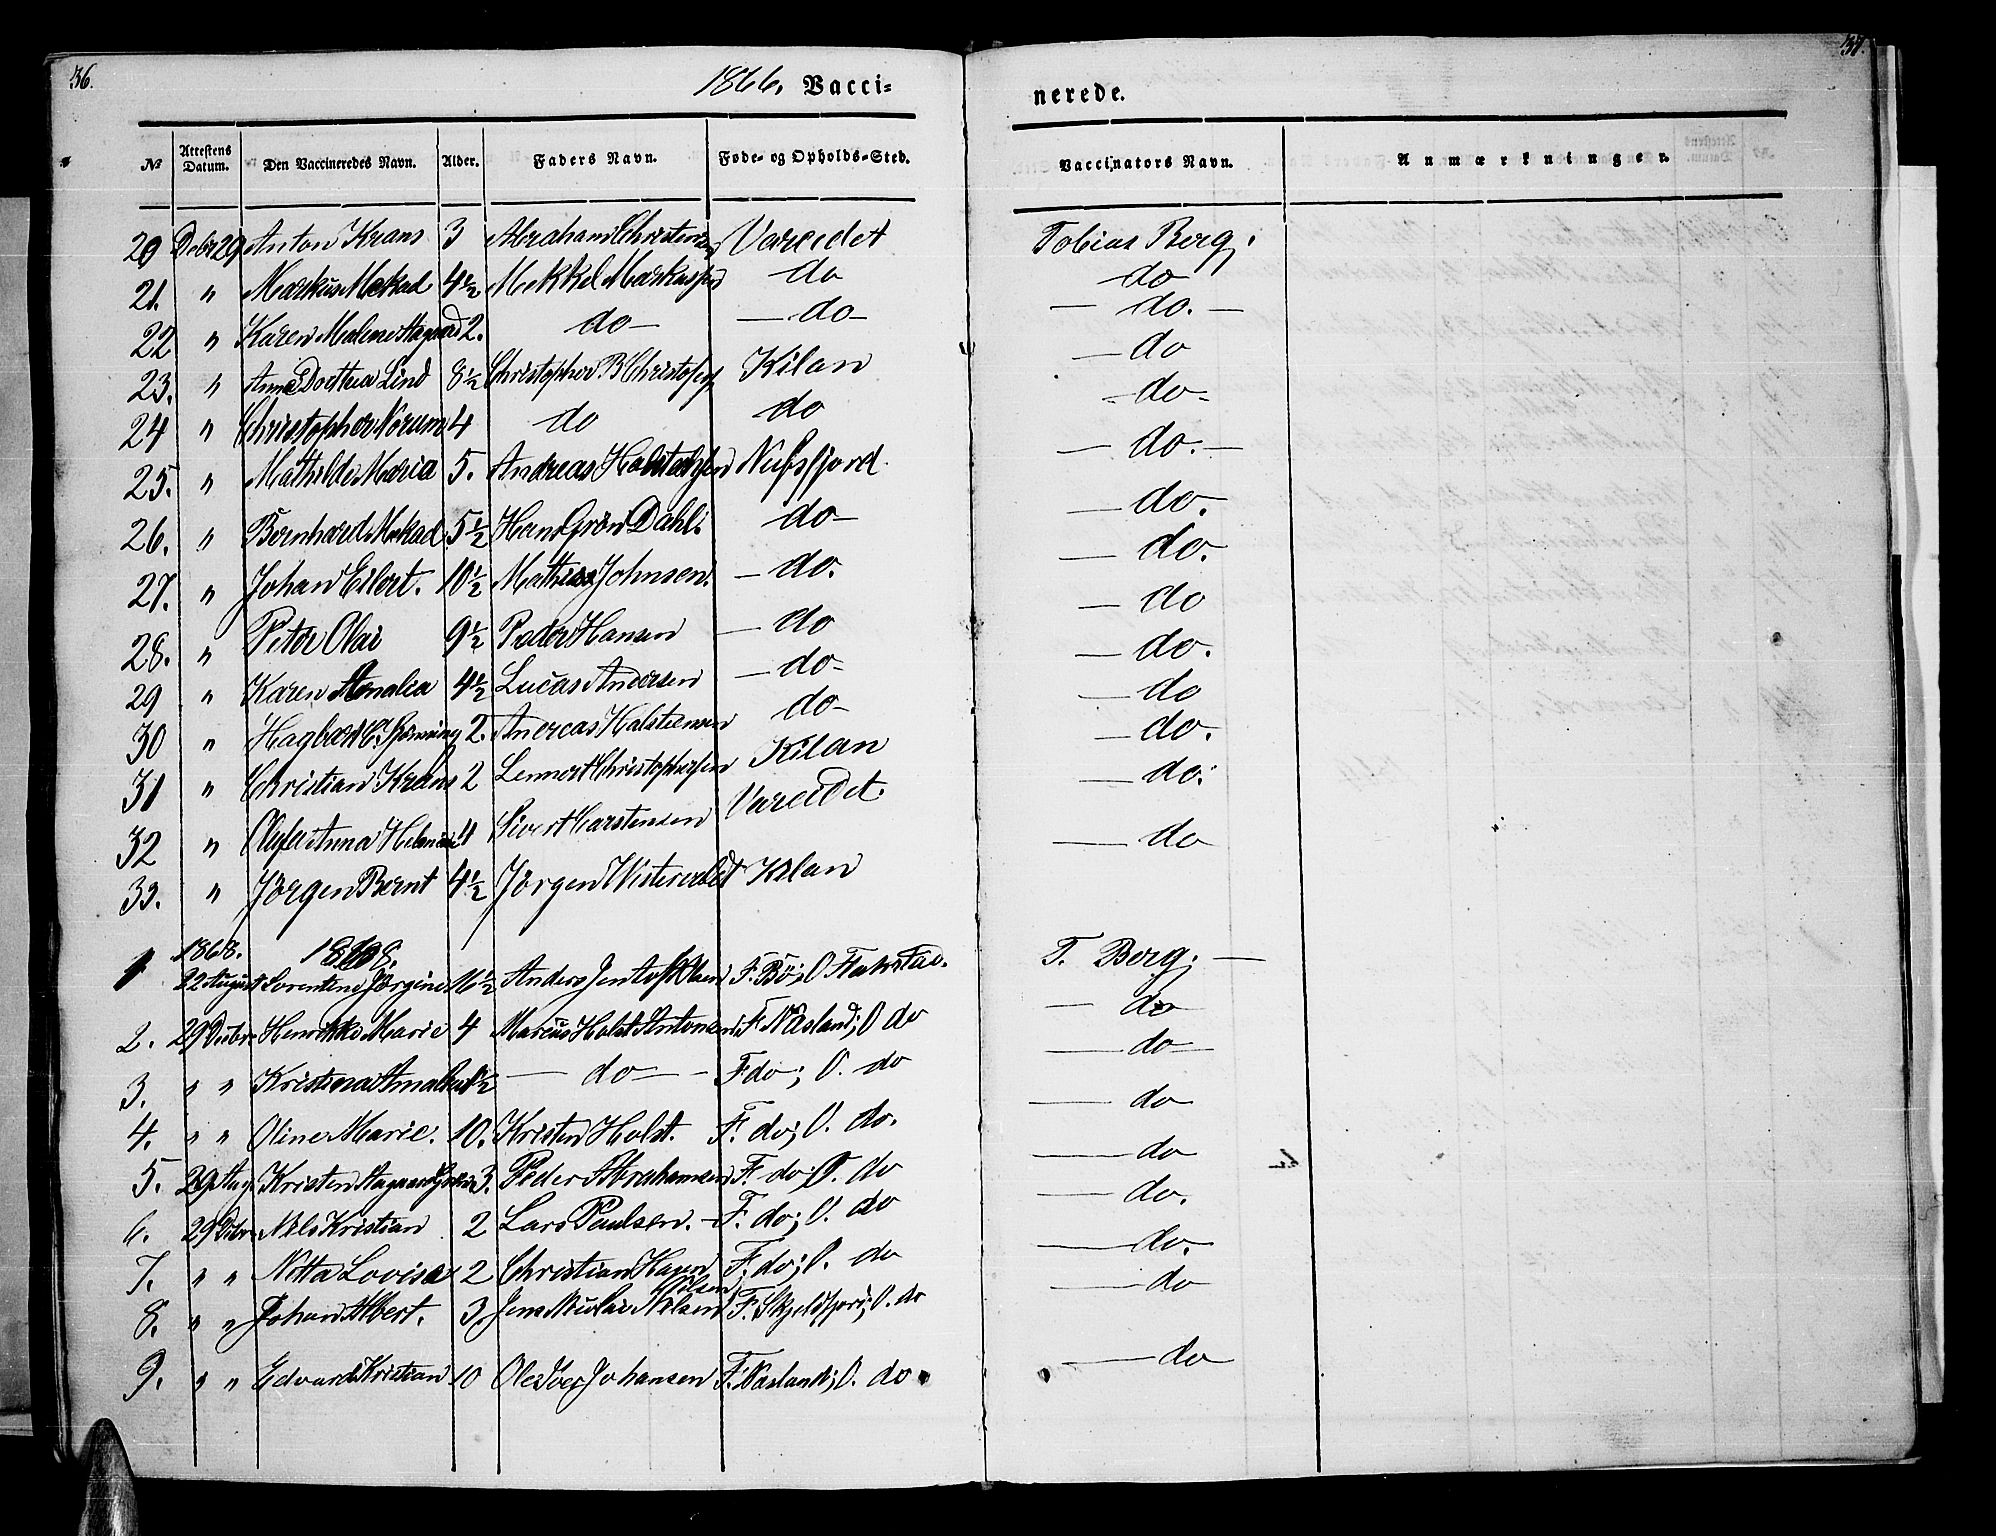 36.
1866. Vacci=
nerede.
37.
No Attestens Datum. Den Vaccineredes Navn. Alder. Faders Navn. Føde- og Opholds-Sted. Vaccinators Navn. Anmærkninger.
20 Decbr 29 Anton Krans 3 Abraham Christensen Vareidet Tobias Berg.
21. " Markus Mekad 4½ Mekkel Markussen do do
22 " Karen Malene Aagaard 2. do — — do — — do. —
23. " Anne Dorthea Lind 8½ Christopher B Christophers Kilan — do
24 " Christopher Norum 4 do do — do -
25. " Mathilde Maria 5. Andreas Halsteensen Nufsfjord — do. —
26. " Bernhard Mekad 5½ Hans Grön Dahl. do — — do.
27. " Johan Eilert. 10½ Mathias Johnsen. — do. — do.
28. " Peter Olai 9½ Peder Hansen — do — do
29 " Karen Amalia 4½ Lucas Andersen — do - — do.
30 " Hagbart C. 2. Anereas Halsteensen do - — do
31 " Christian Krans 2 Lennert Christophersen Kilan — do.
32 " Olufa Anna 4 Sivert Carstensen Vareidet. — do.
33. " Jörgen Bernt 4½ Jörgen Kilan — do
1868. 1868.
1 22 August Lorentine Jørgine 16½ Anders Jentoft Olsen F. Bö; O Flakstad. T. Berg. —
2. 29 Decbr Henrikke Marie 4 Marcus Holst Antonsen F. Näsland; O do — do
3. " " Kristina Amalia ½ — do — - F. do; O. do — do —
4. " " Oline Marie. 10. Kristen Holst. F. do; O. do. — do
5. 29 Aug Kristen Aagaard 3. Peder Abrahamsen F. do; O. do — do
6. 29 Dcbr Nils Kristian 2 Lars Paulsen. — F. do; O. do — do.
7. " " Netta Lovise 2 Christian Hagen F. do; O. do — do.
8. " " Johan Albert. 3. Jens Nicolai Nilsen F. Skjeldfjord; O. do — do
9. " " Edvard Kristian 10 Ole Iver Johansen F. Näsland; O. do — do